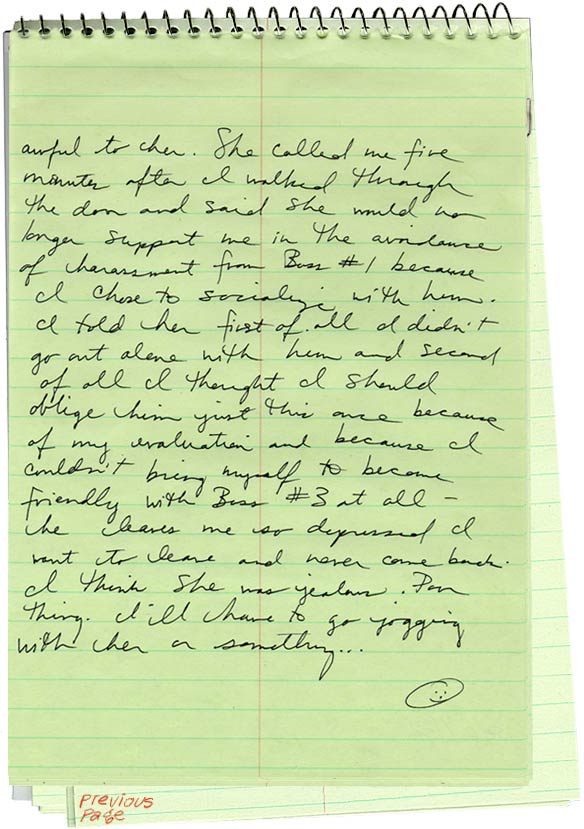 awful to her. She called me five
minutes after I walked through
the door and said she would no
longer support me in the avoidance
of harassment from Boss #1 because
I chose to socialize with him.
I told her first of all I didn't
go out alone with him and second
of all I thought I should
oblige him just this once because
of my evaluation and because I
couldn't bring myself to become
friendly with Boss #3 at all –
he leaves me so depressed I
want to leave and never come back.
I think she was jealous. Poor
thing. I'll have to go jogging
with her or something...
Previous
Page